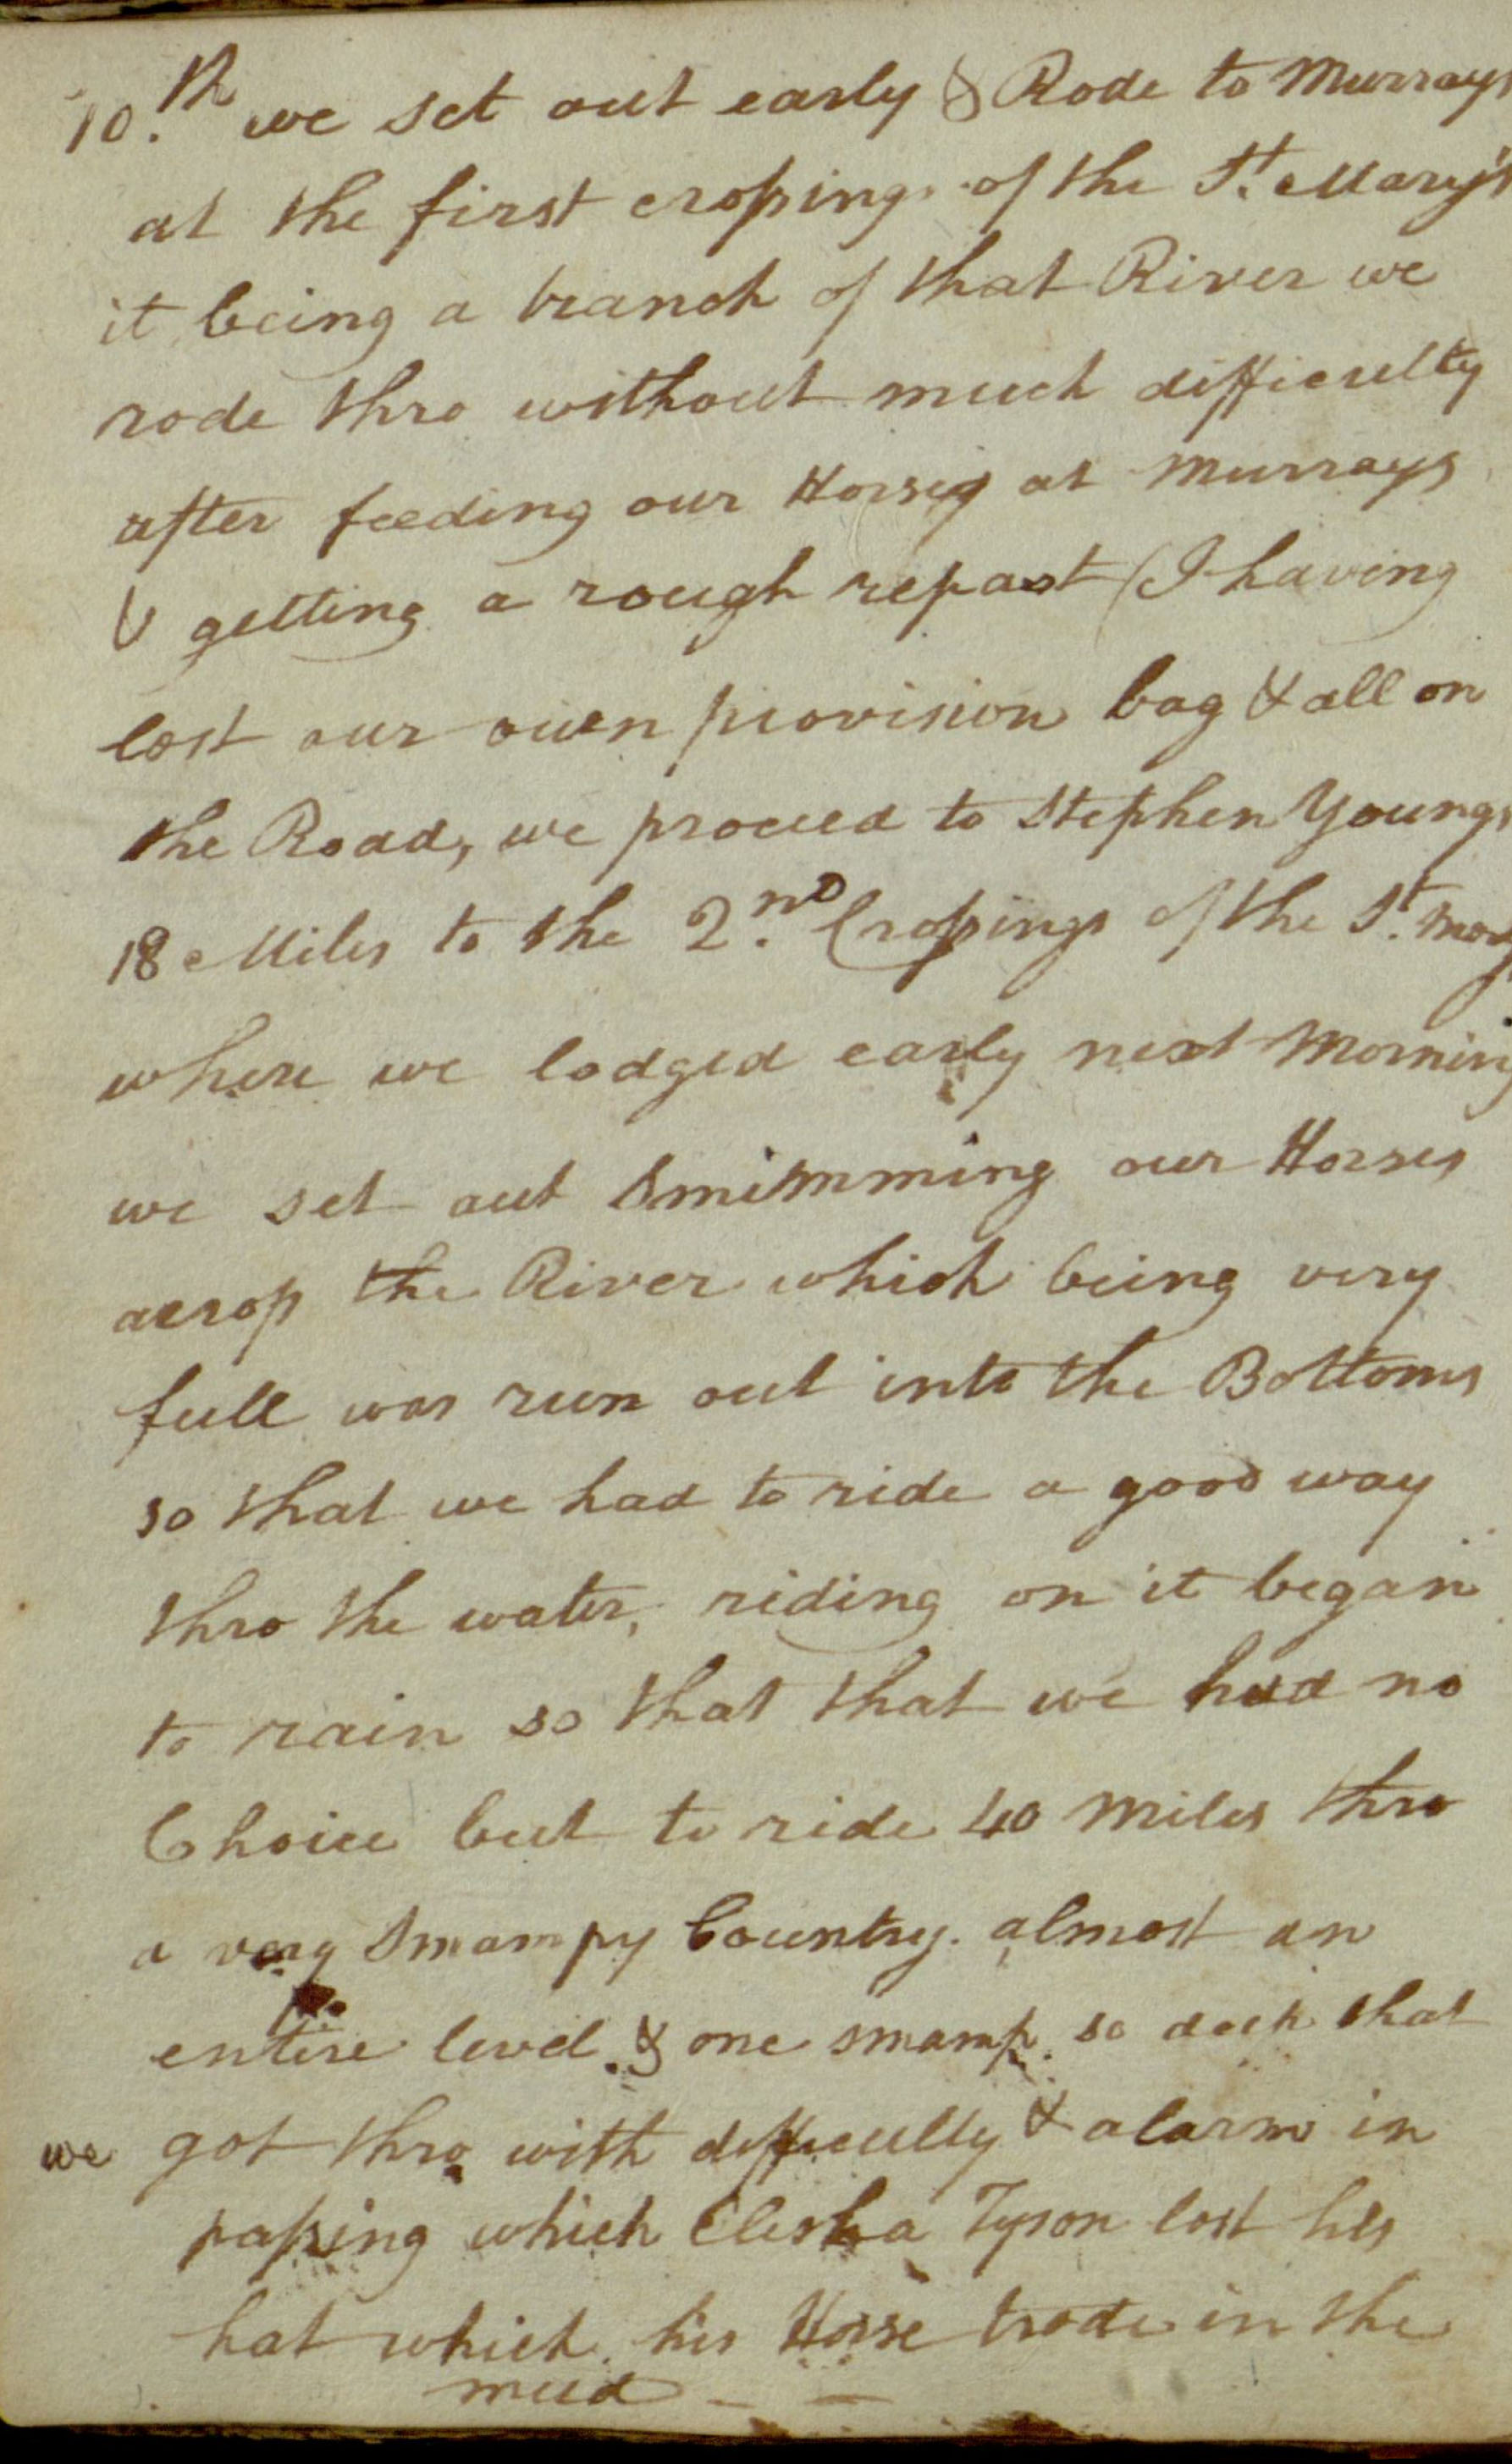 10.th we set out early & Rode to Murrays
at the first crossing of the St. Mary's
it being a branch of that River we
rode thro without much difficulty
after feeding our Horses at Murrays
& getting a rough repast (I having
lost our own provision bag & all on
the Road, we proceed to Stephen Youngs
18 Miles to the 2.nd Crossings of the St. Mary
where we lodged early next Morning
we set out Swimming our Horses
across the River which being very
full was run out into the Bottoms
so that we had to ride a good way
thro the water, riding on it began
to rain so that that we had no
Choice but to ride 40 Miles thro
a very Swampy Country. almost an
entire level & one swamp so deep that
we got thro with difficulty & alarm in
passing which Elisha Tyson lost his
hat which his Horse trode in the
mud